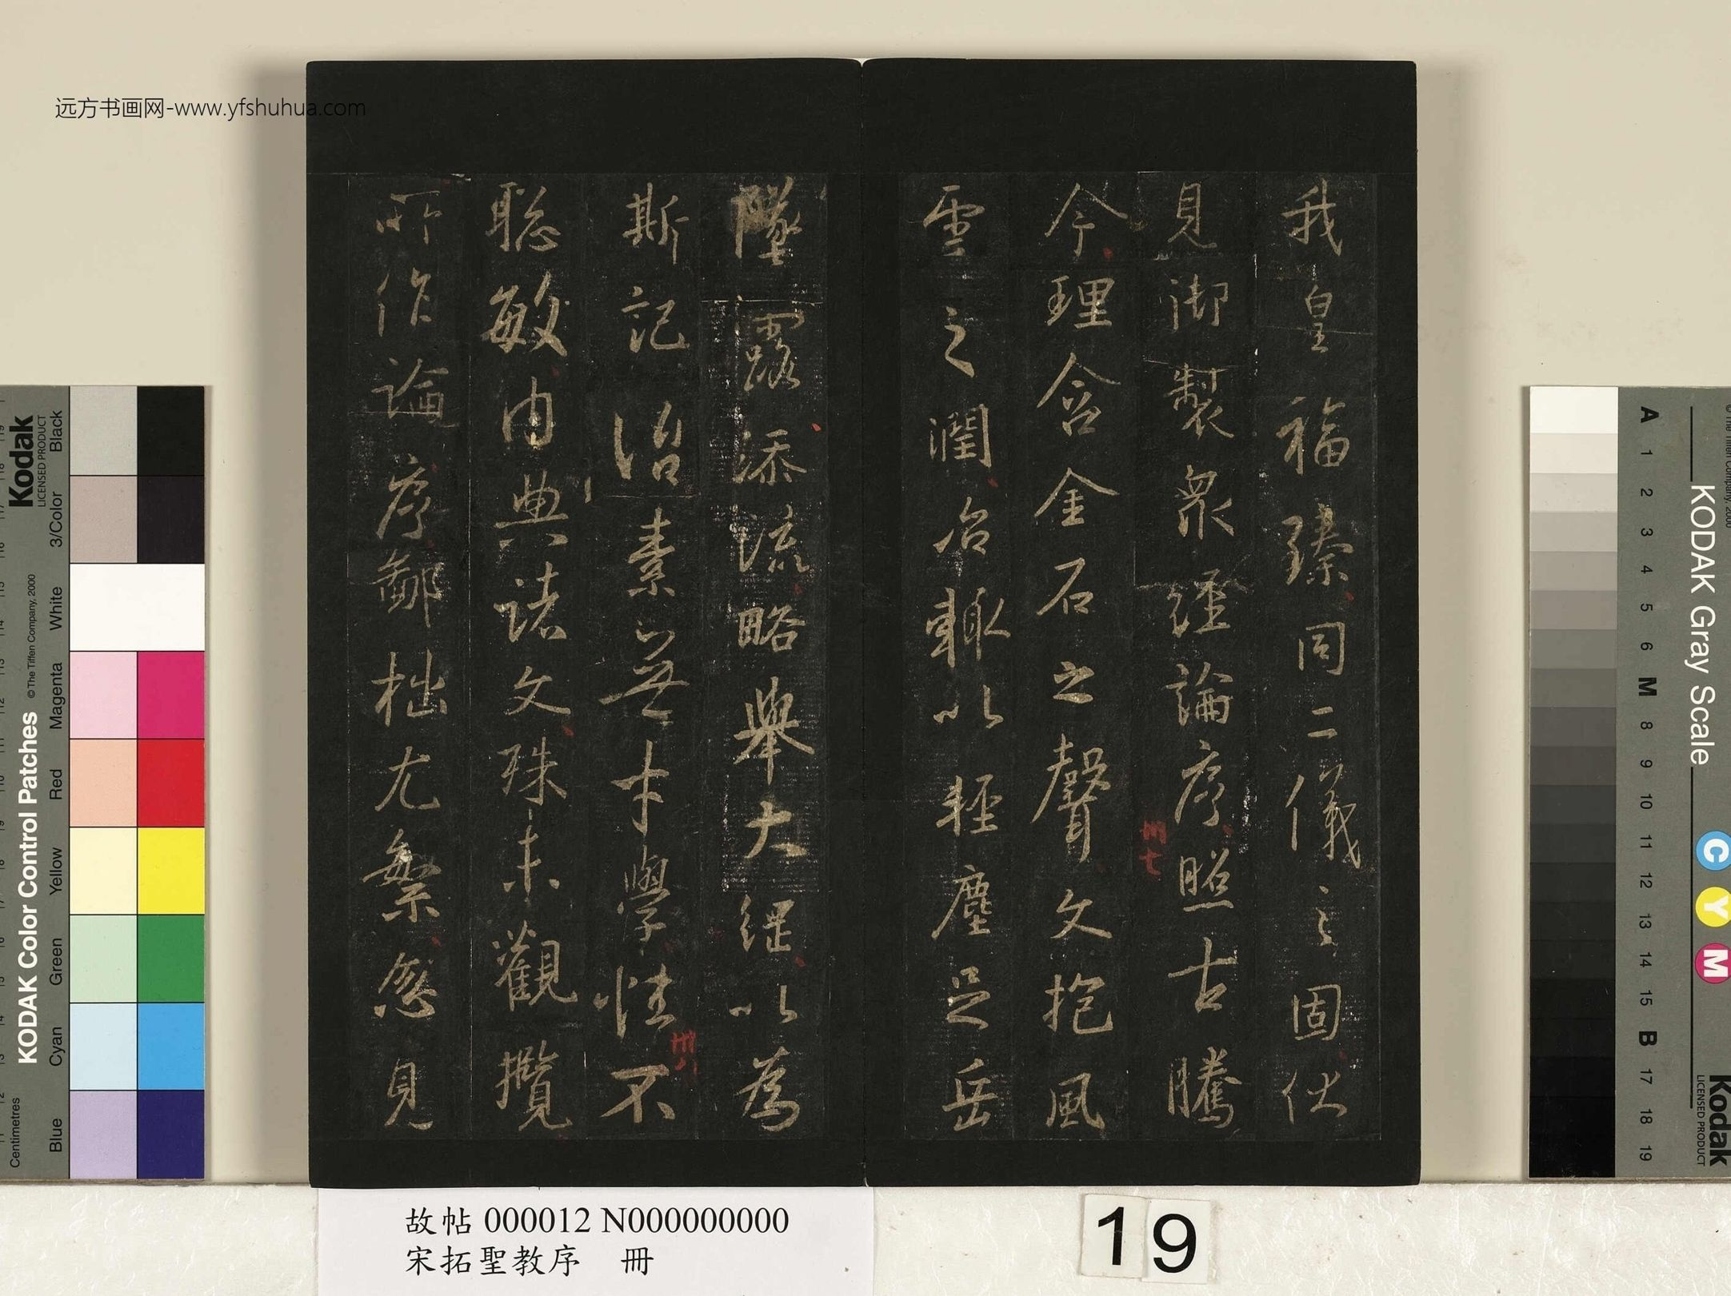 远方书画网-www.yfshuhua.com
我皇福臻同二儀之固伏
見御製眾經論序照古騰
今理含金石之聲文抱風
雲之潤治輒以輕塵足岳
墜露添流略舉大綱以為
斯記治素無才學性不
聰敏内典諸文殊未觀攬
所作論序鄙拙尤繁忽見
卅七
卅八
故帖 000012 N000000000
宋拓聖教序 冊
19
Kodak
LICENSED PRODUCT
KODAK Color Control Patches
© The Tiffen Company, 2000
Centimetres
Black
3/Color
White
Magenta
Red
Yellow
Green
Cyan
Blue
KODAK Gray Scale
A 1 2 3 4 5 6 M 8 9 10 11 12 13 14 15 B 17 18 19
C
Y
M
Kodak
LICENSED PRODUCT